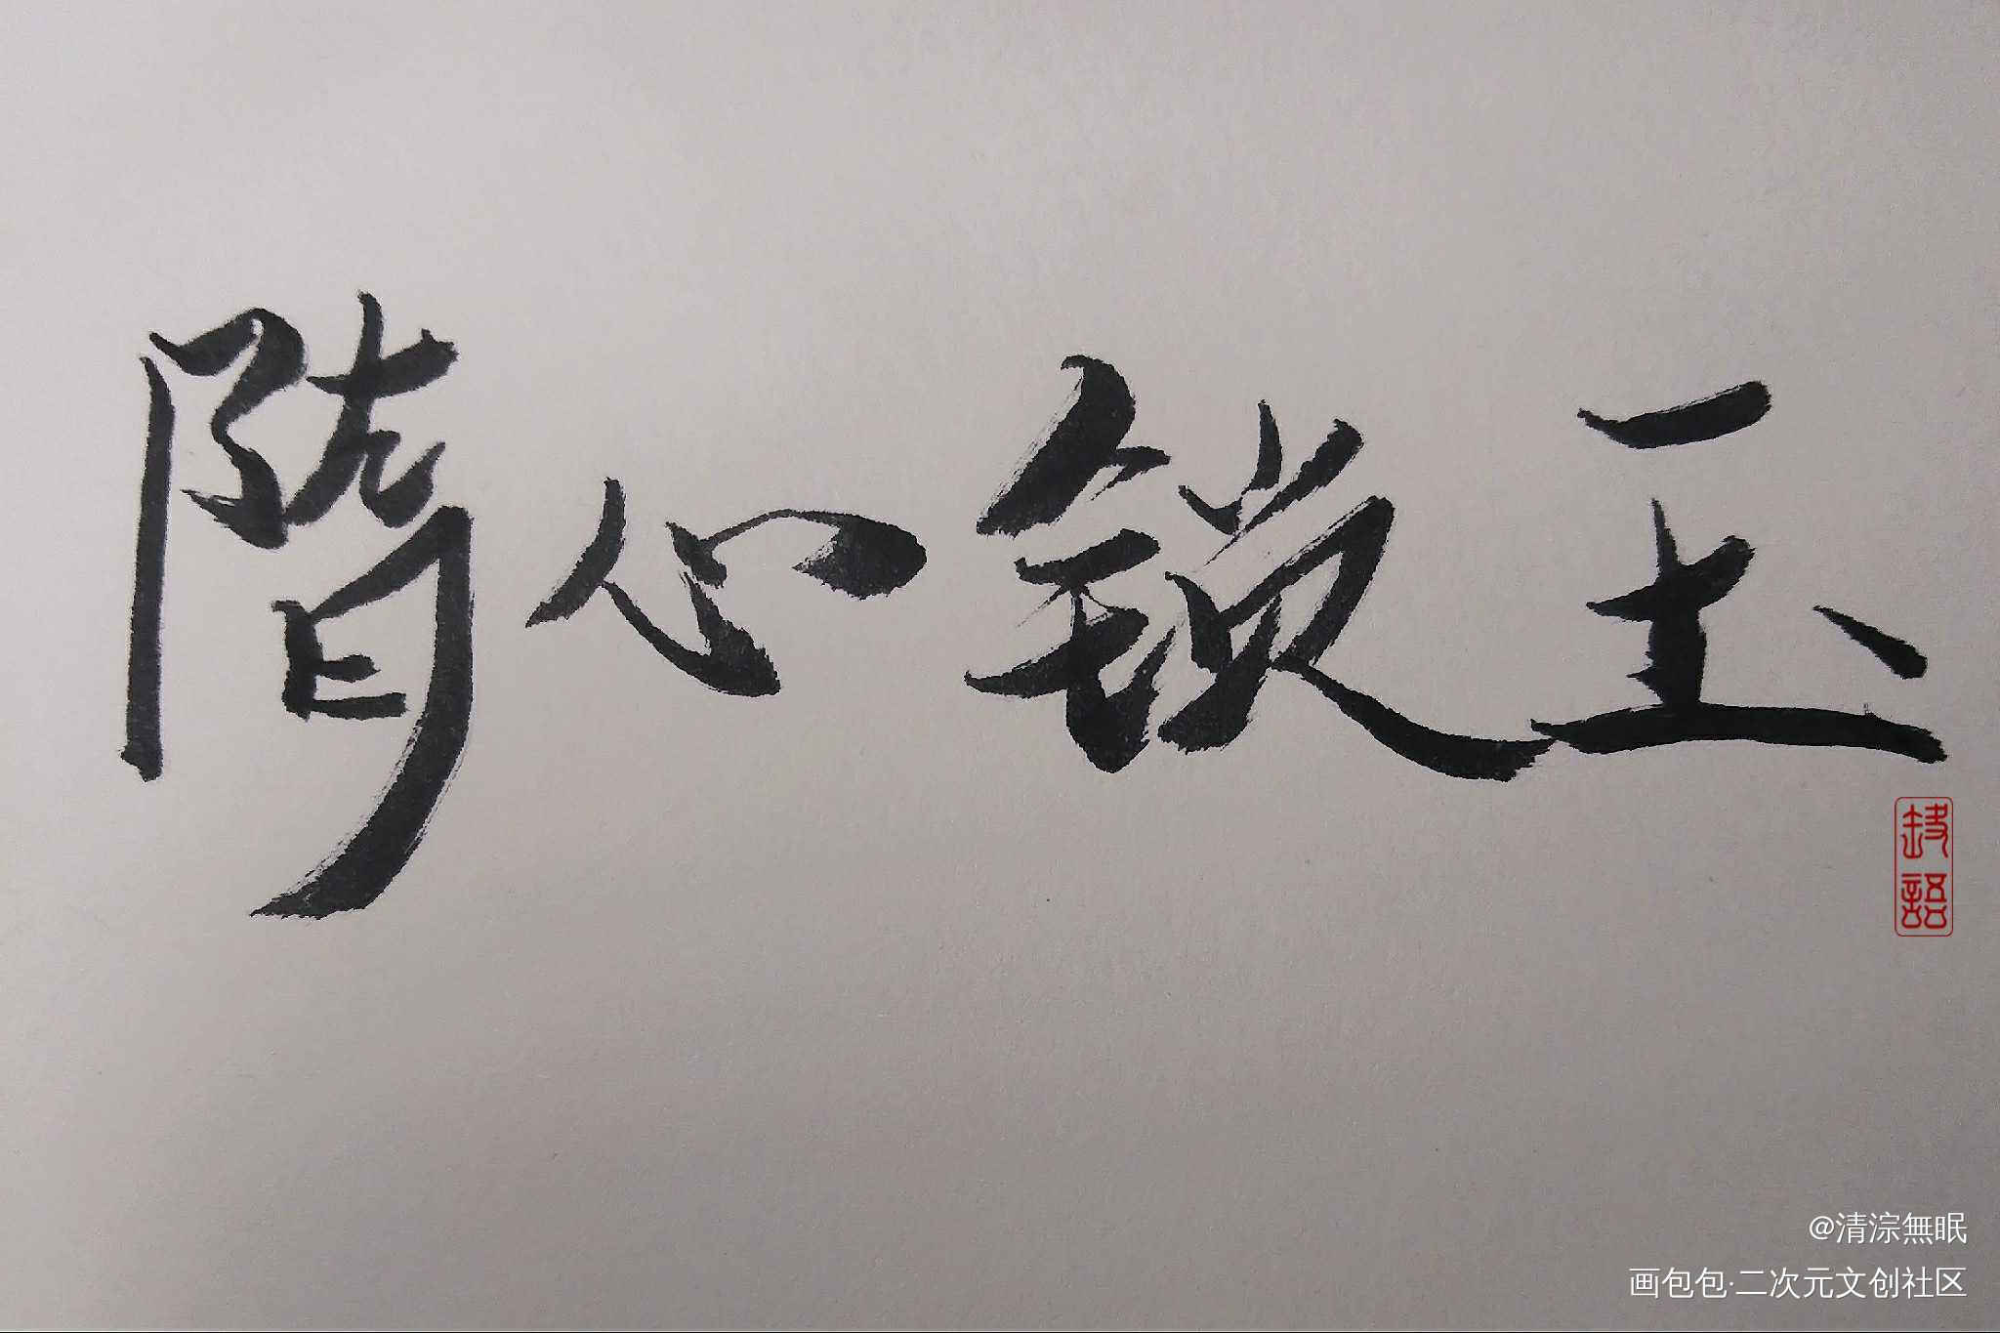 隋心锁玉
@清淙無眠
画包包·二次元文创社区